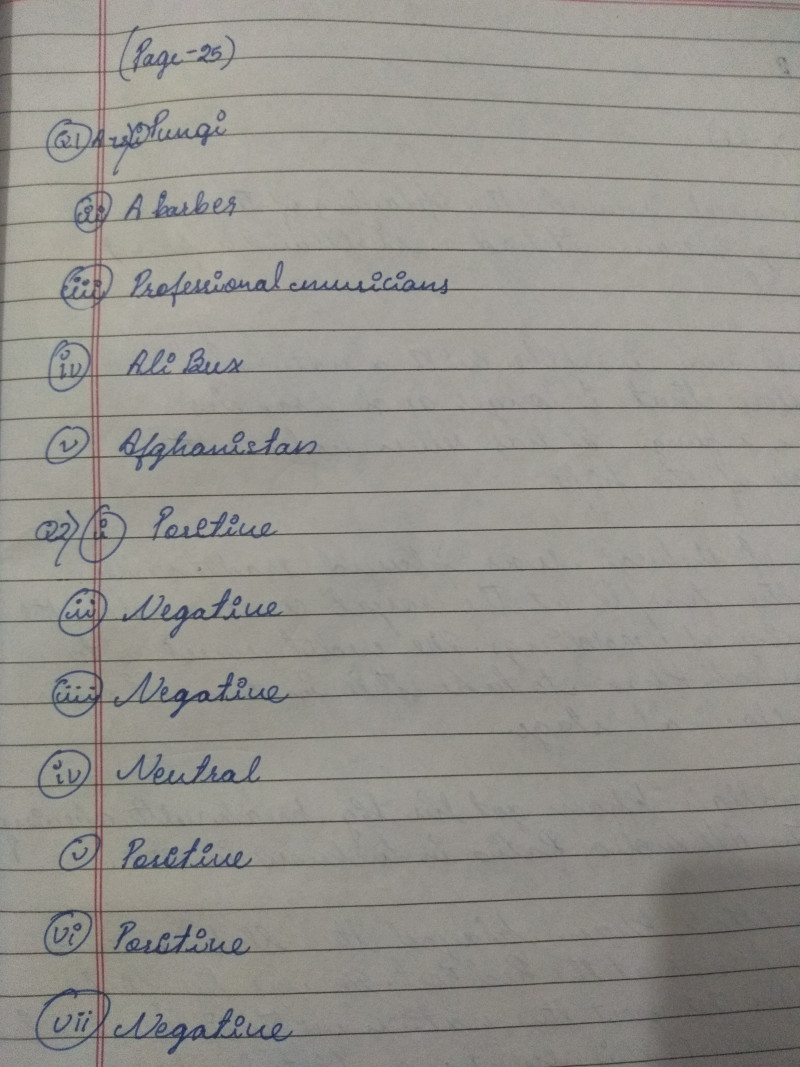 (Page-25)
Q1) Ans) i Pungi
ii A barber
iii Professional musicians
iv Ali Bux
v Afghanistan
Q2) i Positive
ii Negative
iii Negative
iv Neutral
v Positive
vi Positive
vii Negative